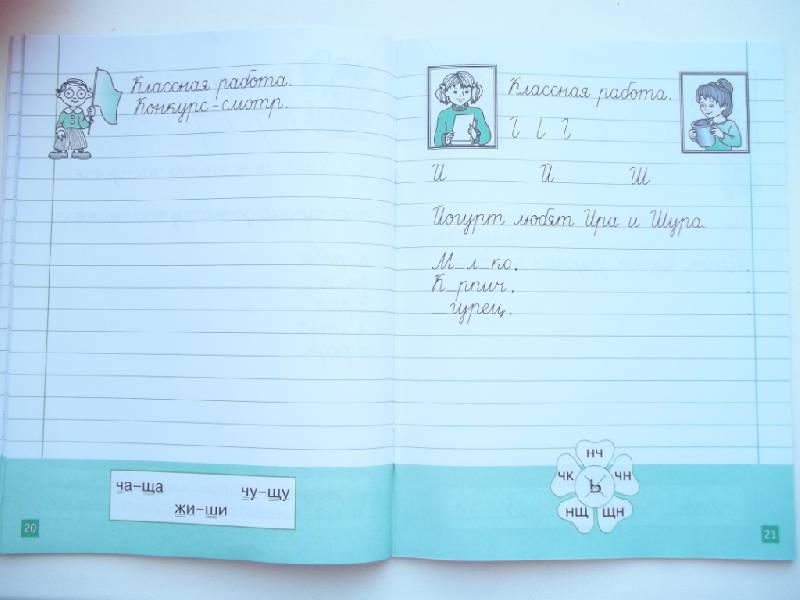 Классная работа.
Конкурс-смотр.
ча-ща
чу-щу
жи-ши
20
Классная работа.
И Й Ш
Йогурт любят Ира и Шура.
М_л_ко.
К_рпич.
_гурец.
нч
чк чн
ь
нщ щн
21